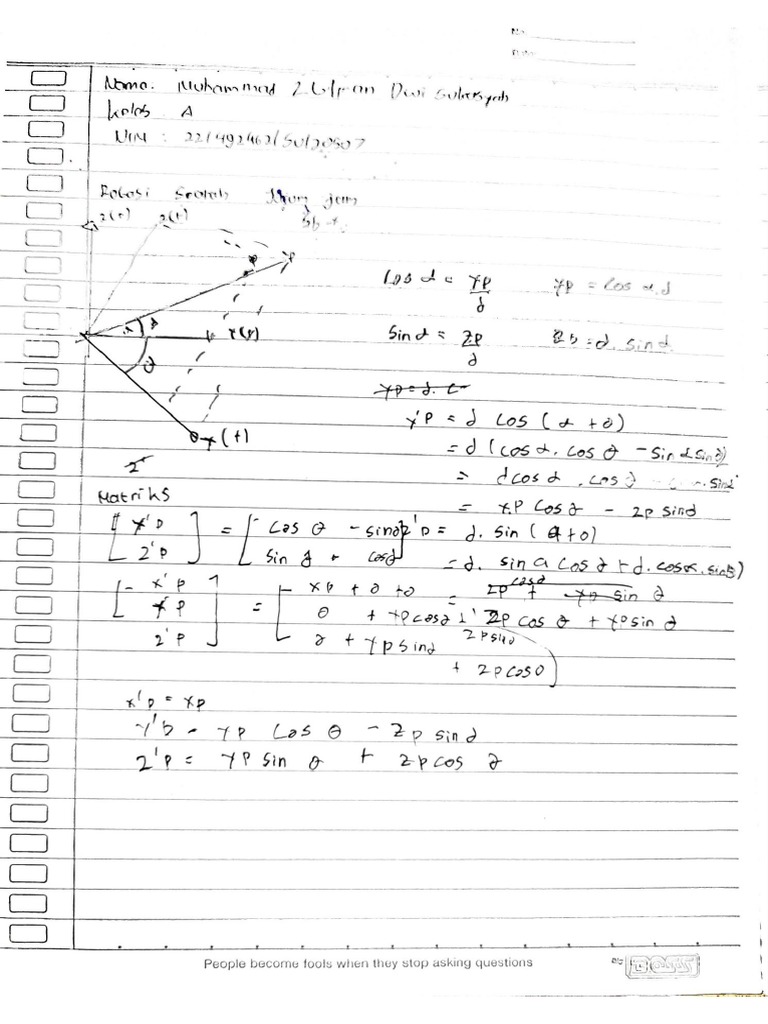 No.
Date
Nama: Muhammad Zulfan Dwi
Kelas A
NIM : 22/492462/SV/20507
Rotasi Searah Jarum jam
z(t) z(t) sb +
P
α y(p)
θ
y(t)
Cos α = yp/d yp = cos α.d
Sin α = zp/d = d. sin α
yp = d. c
y'p = d cos (α + θ)
= d (cos α. cos θ - sin α sin θ)
= d cos α . cos θ - sin α
= yp cos θ - zp sin θ
Matriks
[ y'p z'p ] = [ cos θ - sin θ sin θ + cos θ ]
z'p = d. sin (α + θ)
= d. sin α cos θ + d. cos α. sin θ)
= zp cos θ + yp sin θ
zp cos θ + yp sin θ
[ x'p y'p z'p ] = [ xp + 0 + 0
0 + yp cos θ + zp sin θ
0 + yp sin θ + zp cos θ ]
x'p = xp
y'p = yp cos θ - zp sin θ
z'p = yp sin θ + zp cos θ
People become fools when they stop asking questions
BOSS